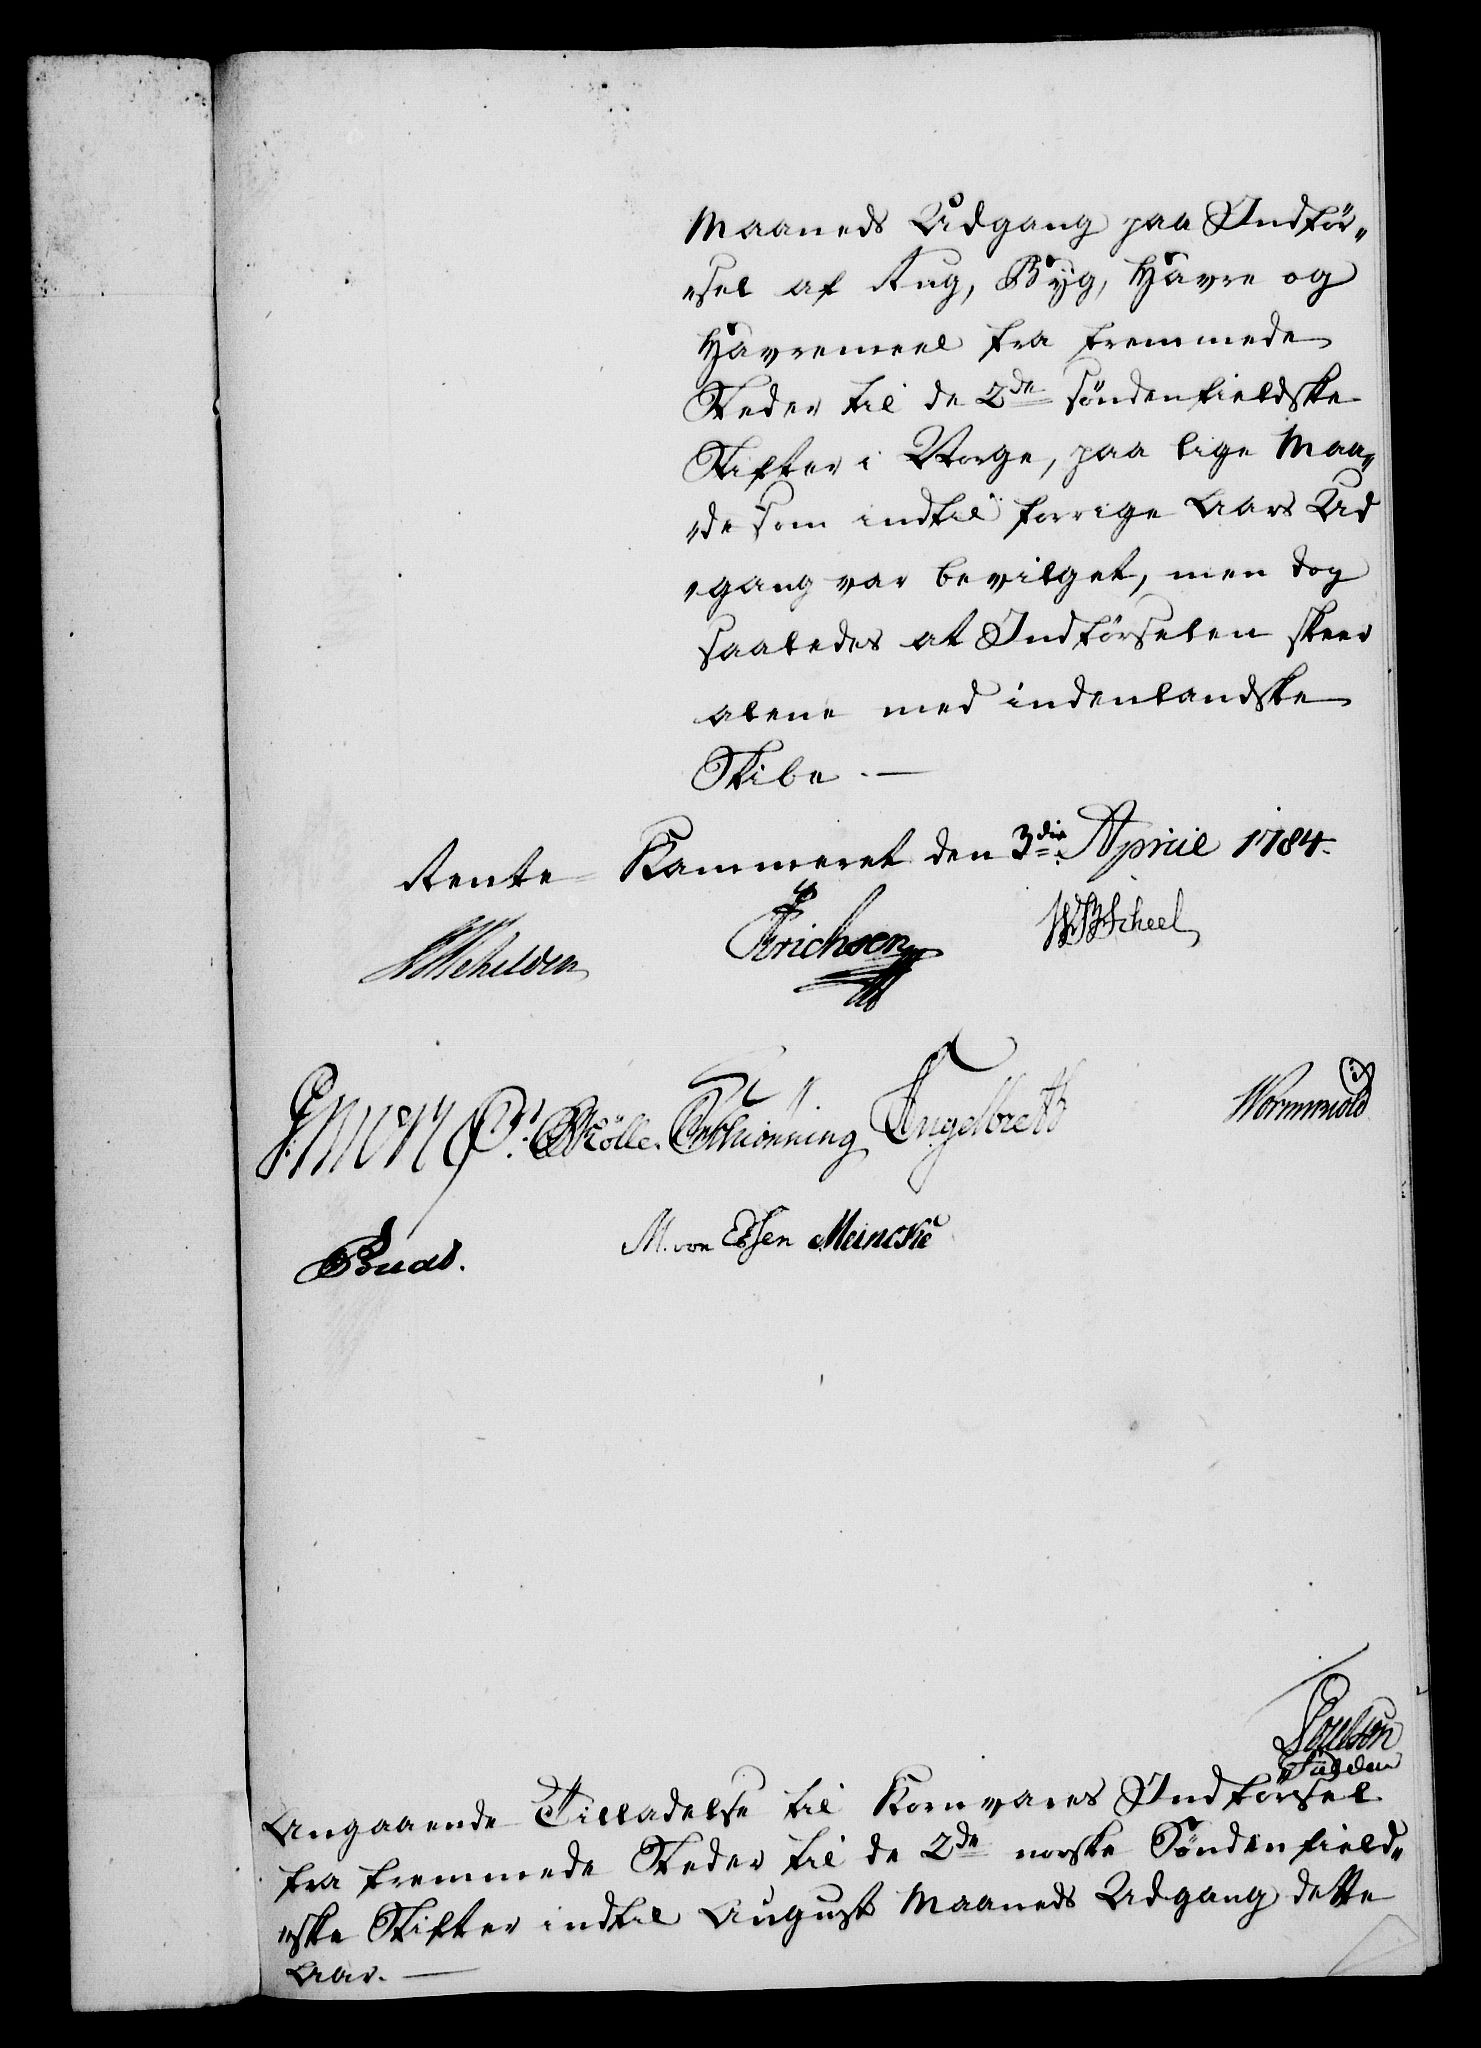 Maaneds Udgang paa Indför„
„sel af Rug, Byg, Havre og
Havremeel fra fremmede
Steder til de 2de söndenfieldske
Stifter i Norge, paa lige Maa„
„de som indtil forrige Aars Ud
„gang var bevilget, men dog
saaledes at Indförselen skeer
alene med indenlandske
Skibe. —
Rente-Kammeret den 3die April 1784.
Erichsen WBScheel
Mölle. Schiönning Engelbreth Wormwold
M. von Essen Meincke
Angaaende Tilladelse til Kornvares Indförsel
fra fremmede Steder til de 2de norske Söndenfield„
„ske Stifter indtil August Maaneds Udgang dette
Aar. —